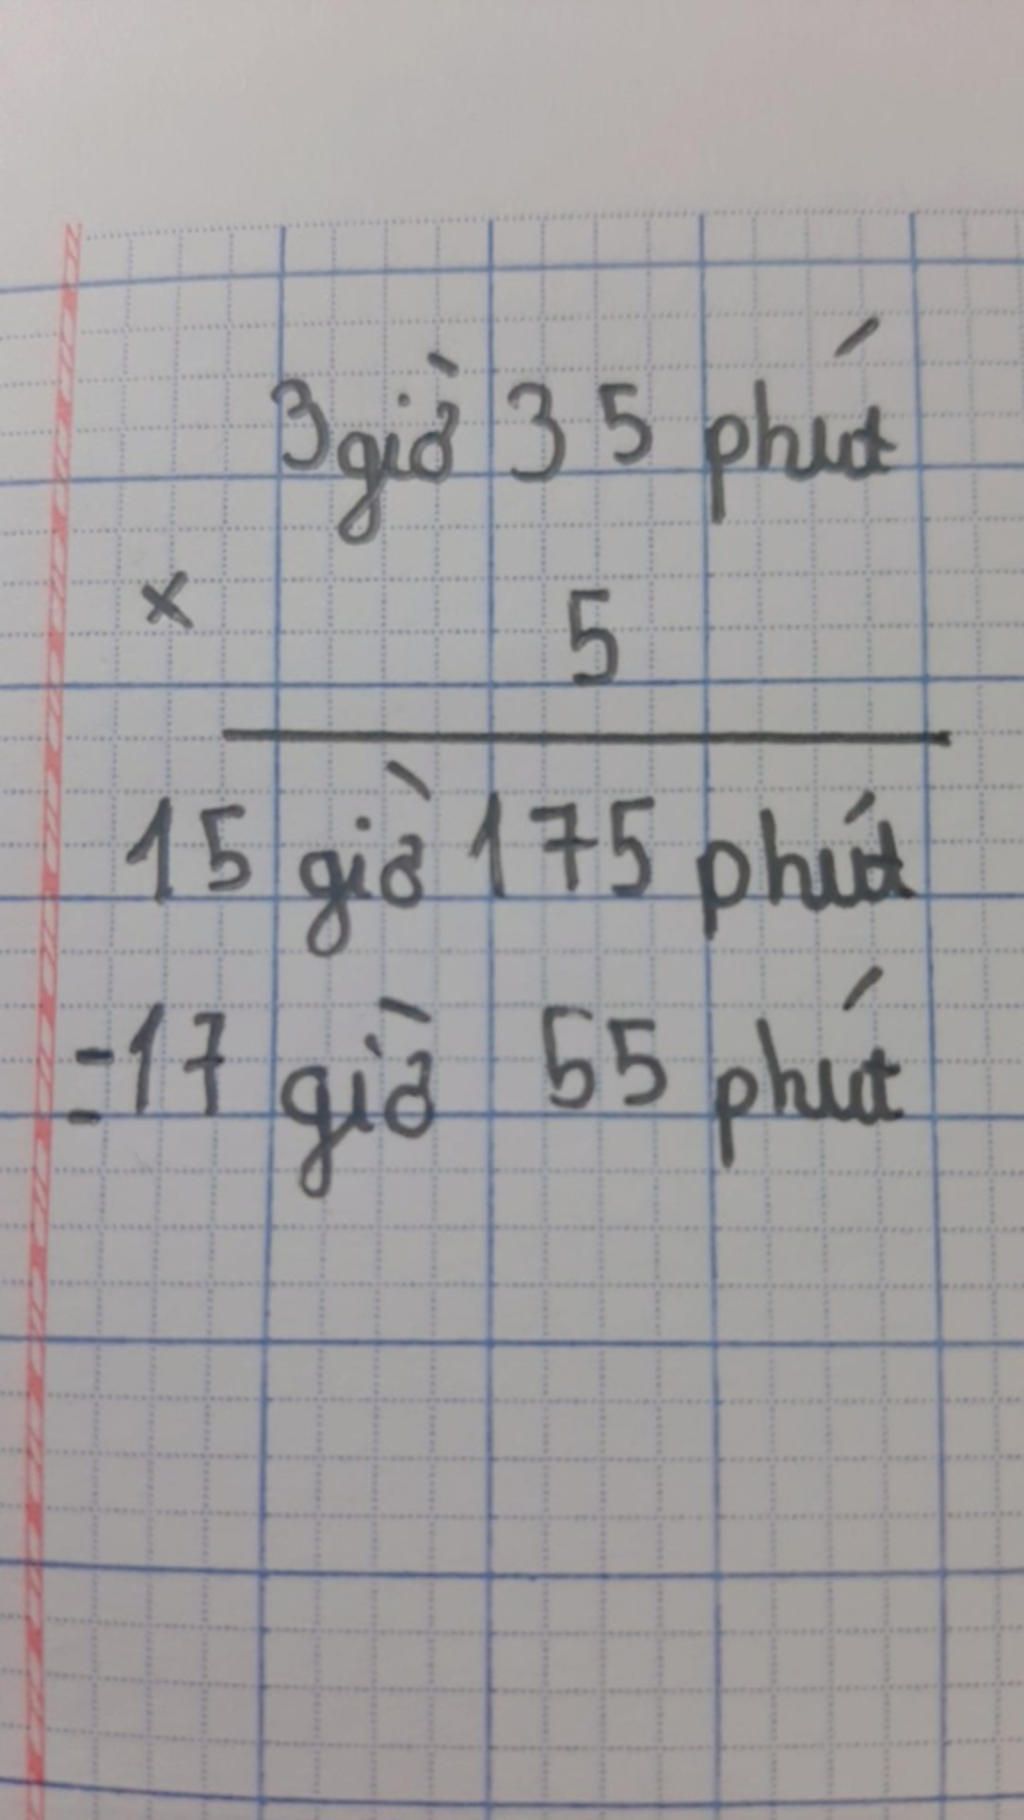 3 giờ 35 phút
×
5
15 giờ 175 phút
= 17 giờ 55 phút